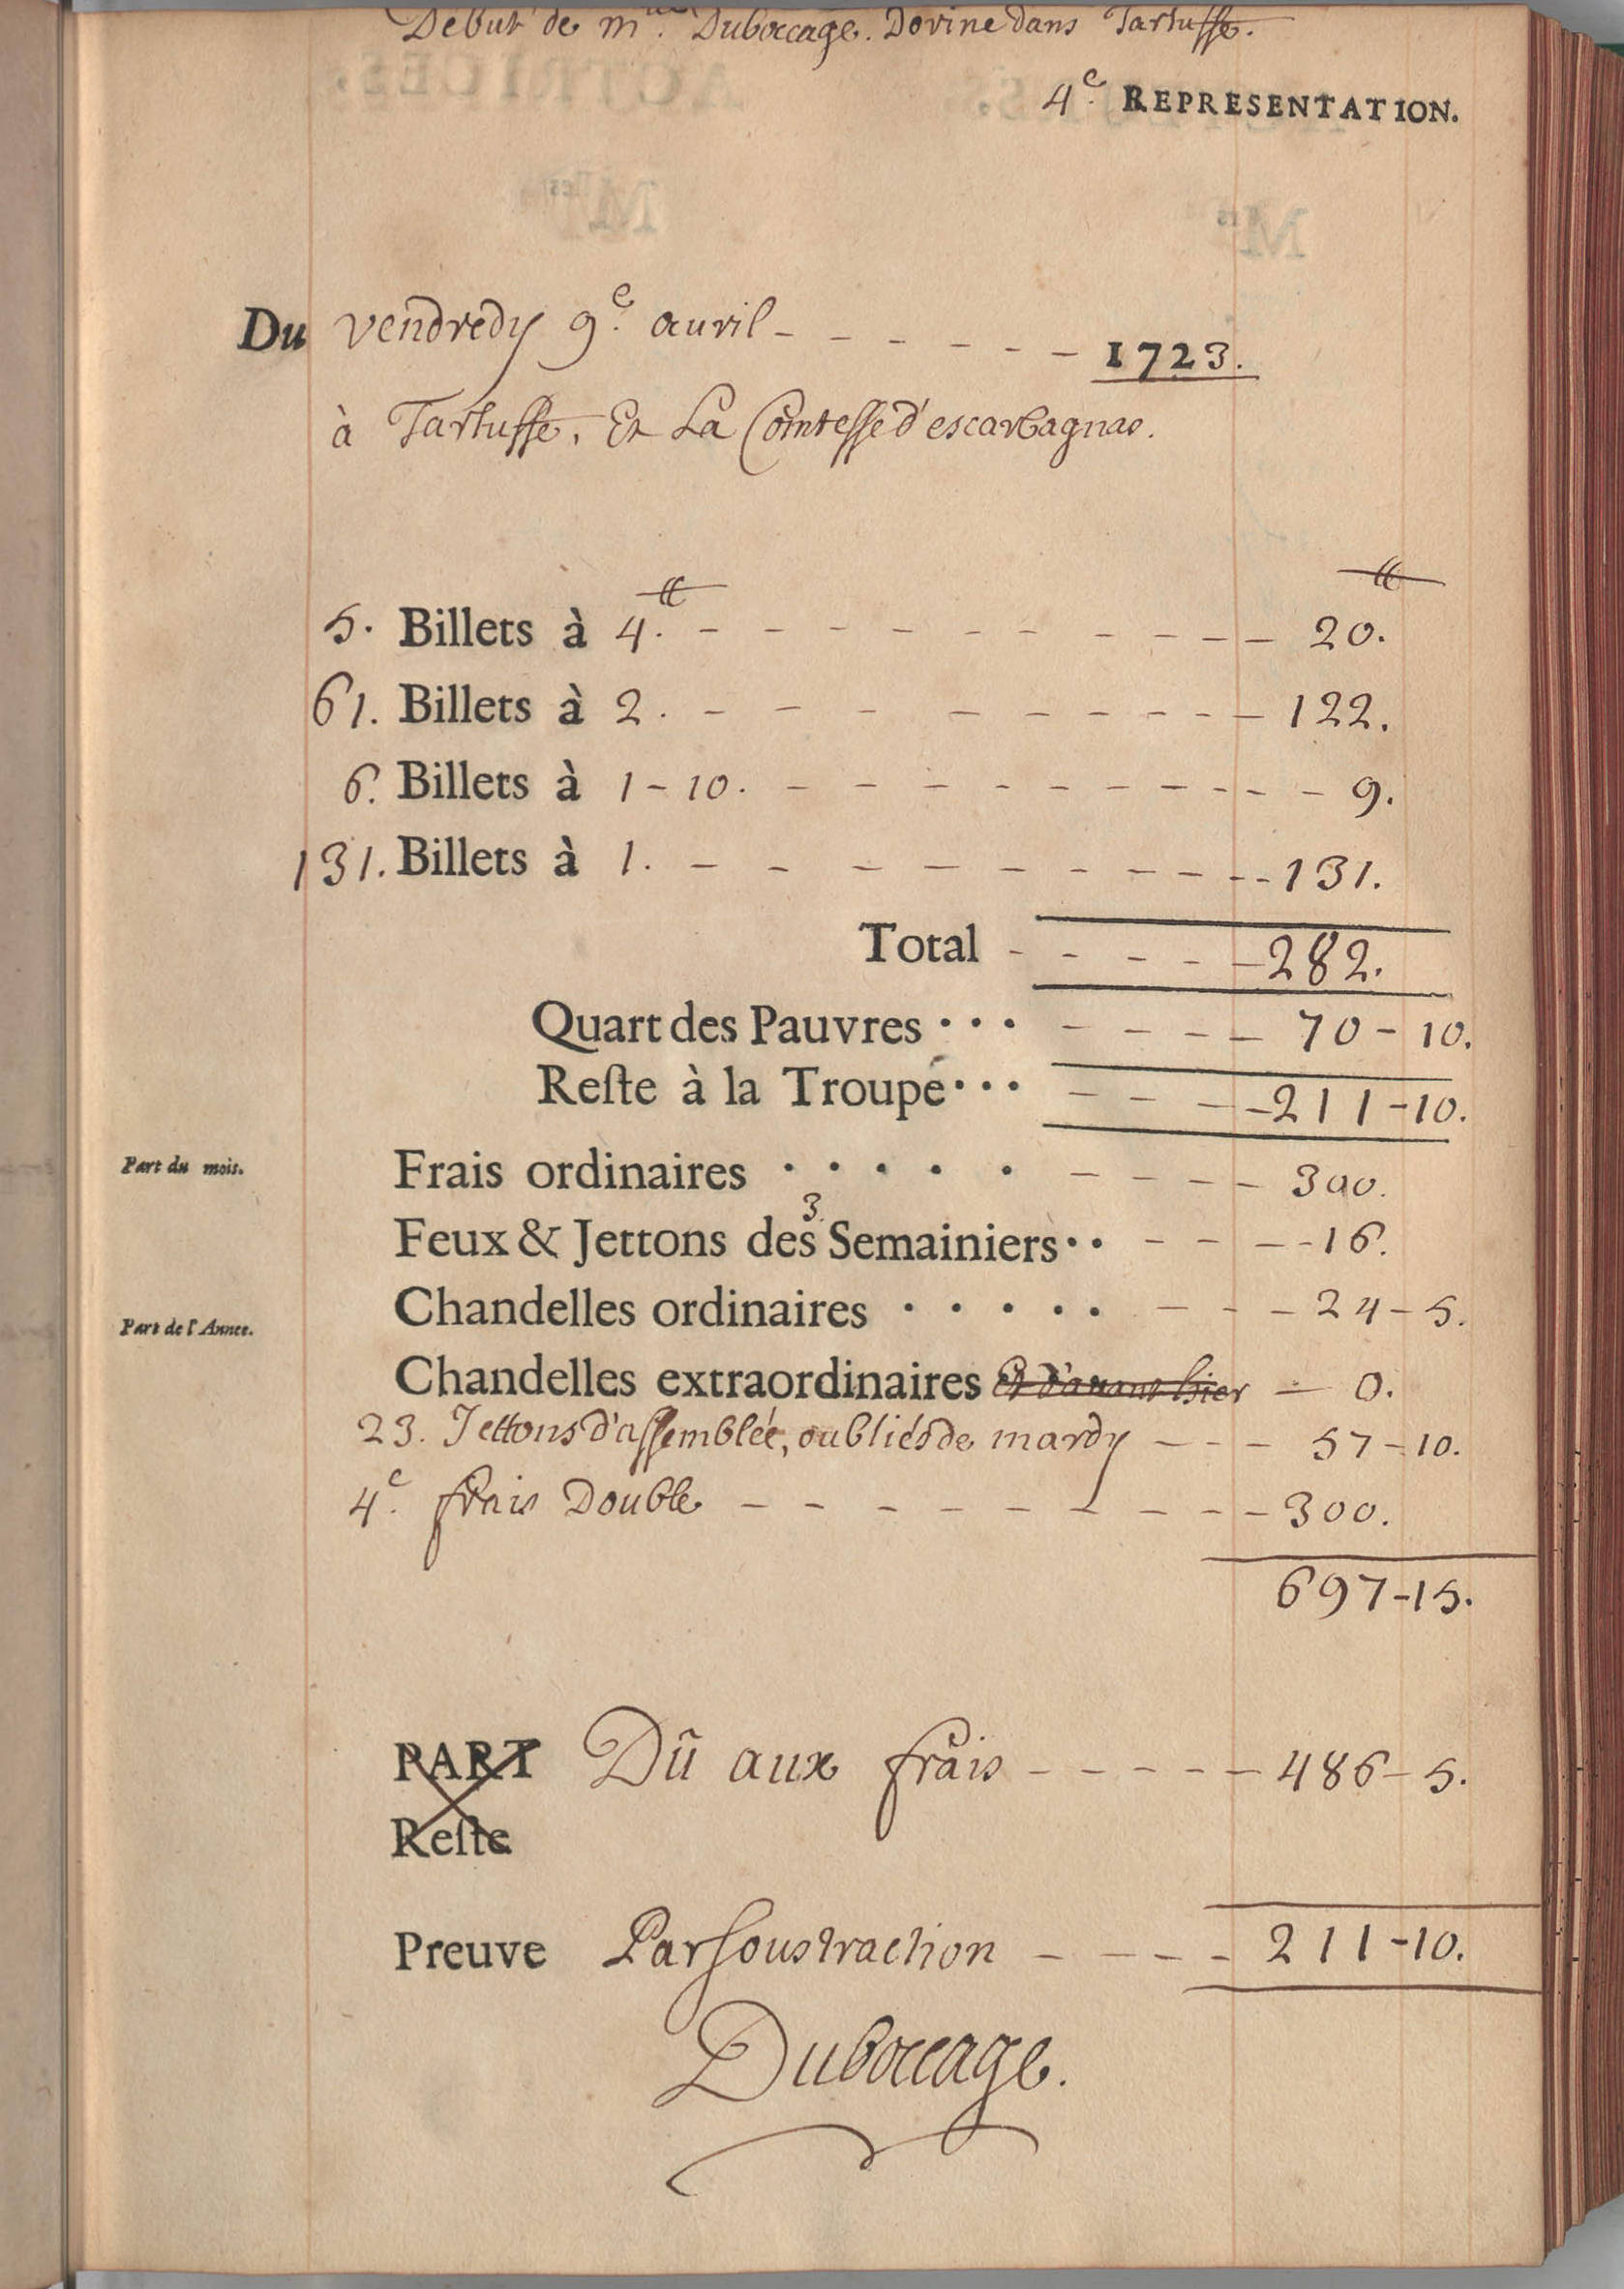 Debut de m.lle Duboccage. Dorine dans Tartuffe.
4e. REPRESENTATION.
Du vendredy 9e. auril - - - - - - 1723.
à Tartuffe, Et La Comtesse d'escarbagnas.
₶ ₶
5. Billets à 4. - - - - - - - - - - 20.
61. Billets à 2. - - - - - - - - - - 122.
6. Billets à 1-10. - - - - - - - - - - 9.
131. Billets à 1. - - - - - - - - - - 131.
Total - - - - - 282.
Quart des Pauvres · · · - - - - 70-10.
Reste à la Troupe · · · - - - - 211-10.
Part du mois.
Frais ordinaires · · · · · - - - - 300.
Feux & Jettons des 3. Semainiers · · - - - 16.
Chandelles ordinaires · · · · · - - - 24-5.
Part de l'Annee.
Chandelles extraordinaires Et d'auant hier - 0.
23. Jettons d'assemblée, oubliés de mardy - - - 57-10.
4e. frais Double - - - - - - - - - 300.
697-15.
PART Dû aux frais - - - - - 486-5.
Reste
Preuve Par soustraction - - - - 211-10.
Duboccage.